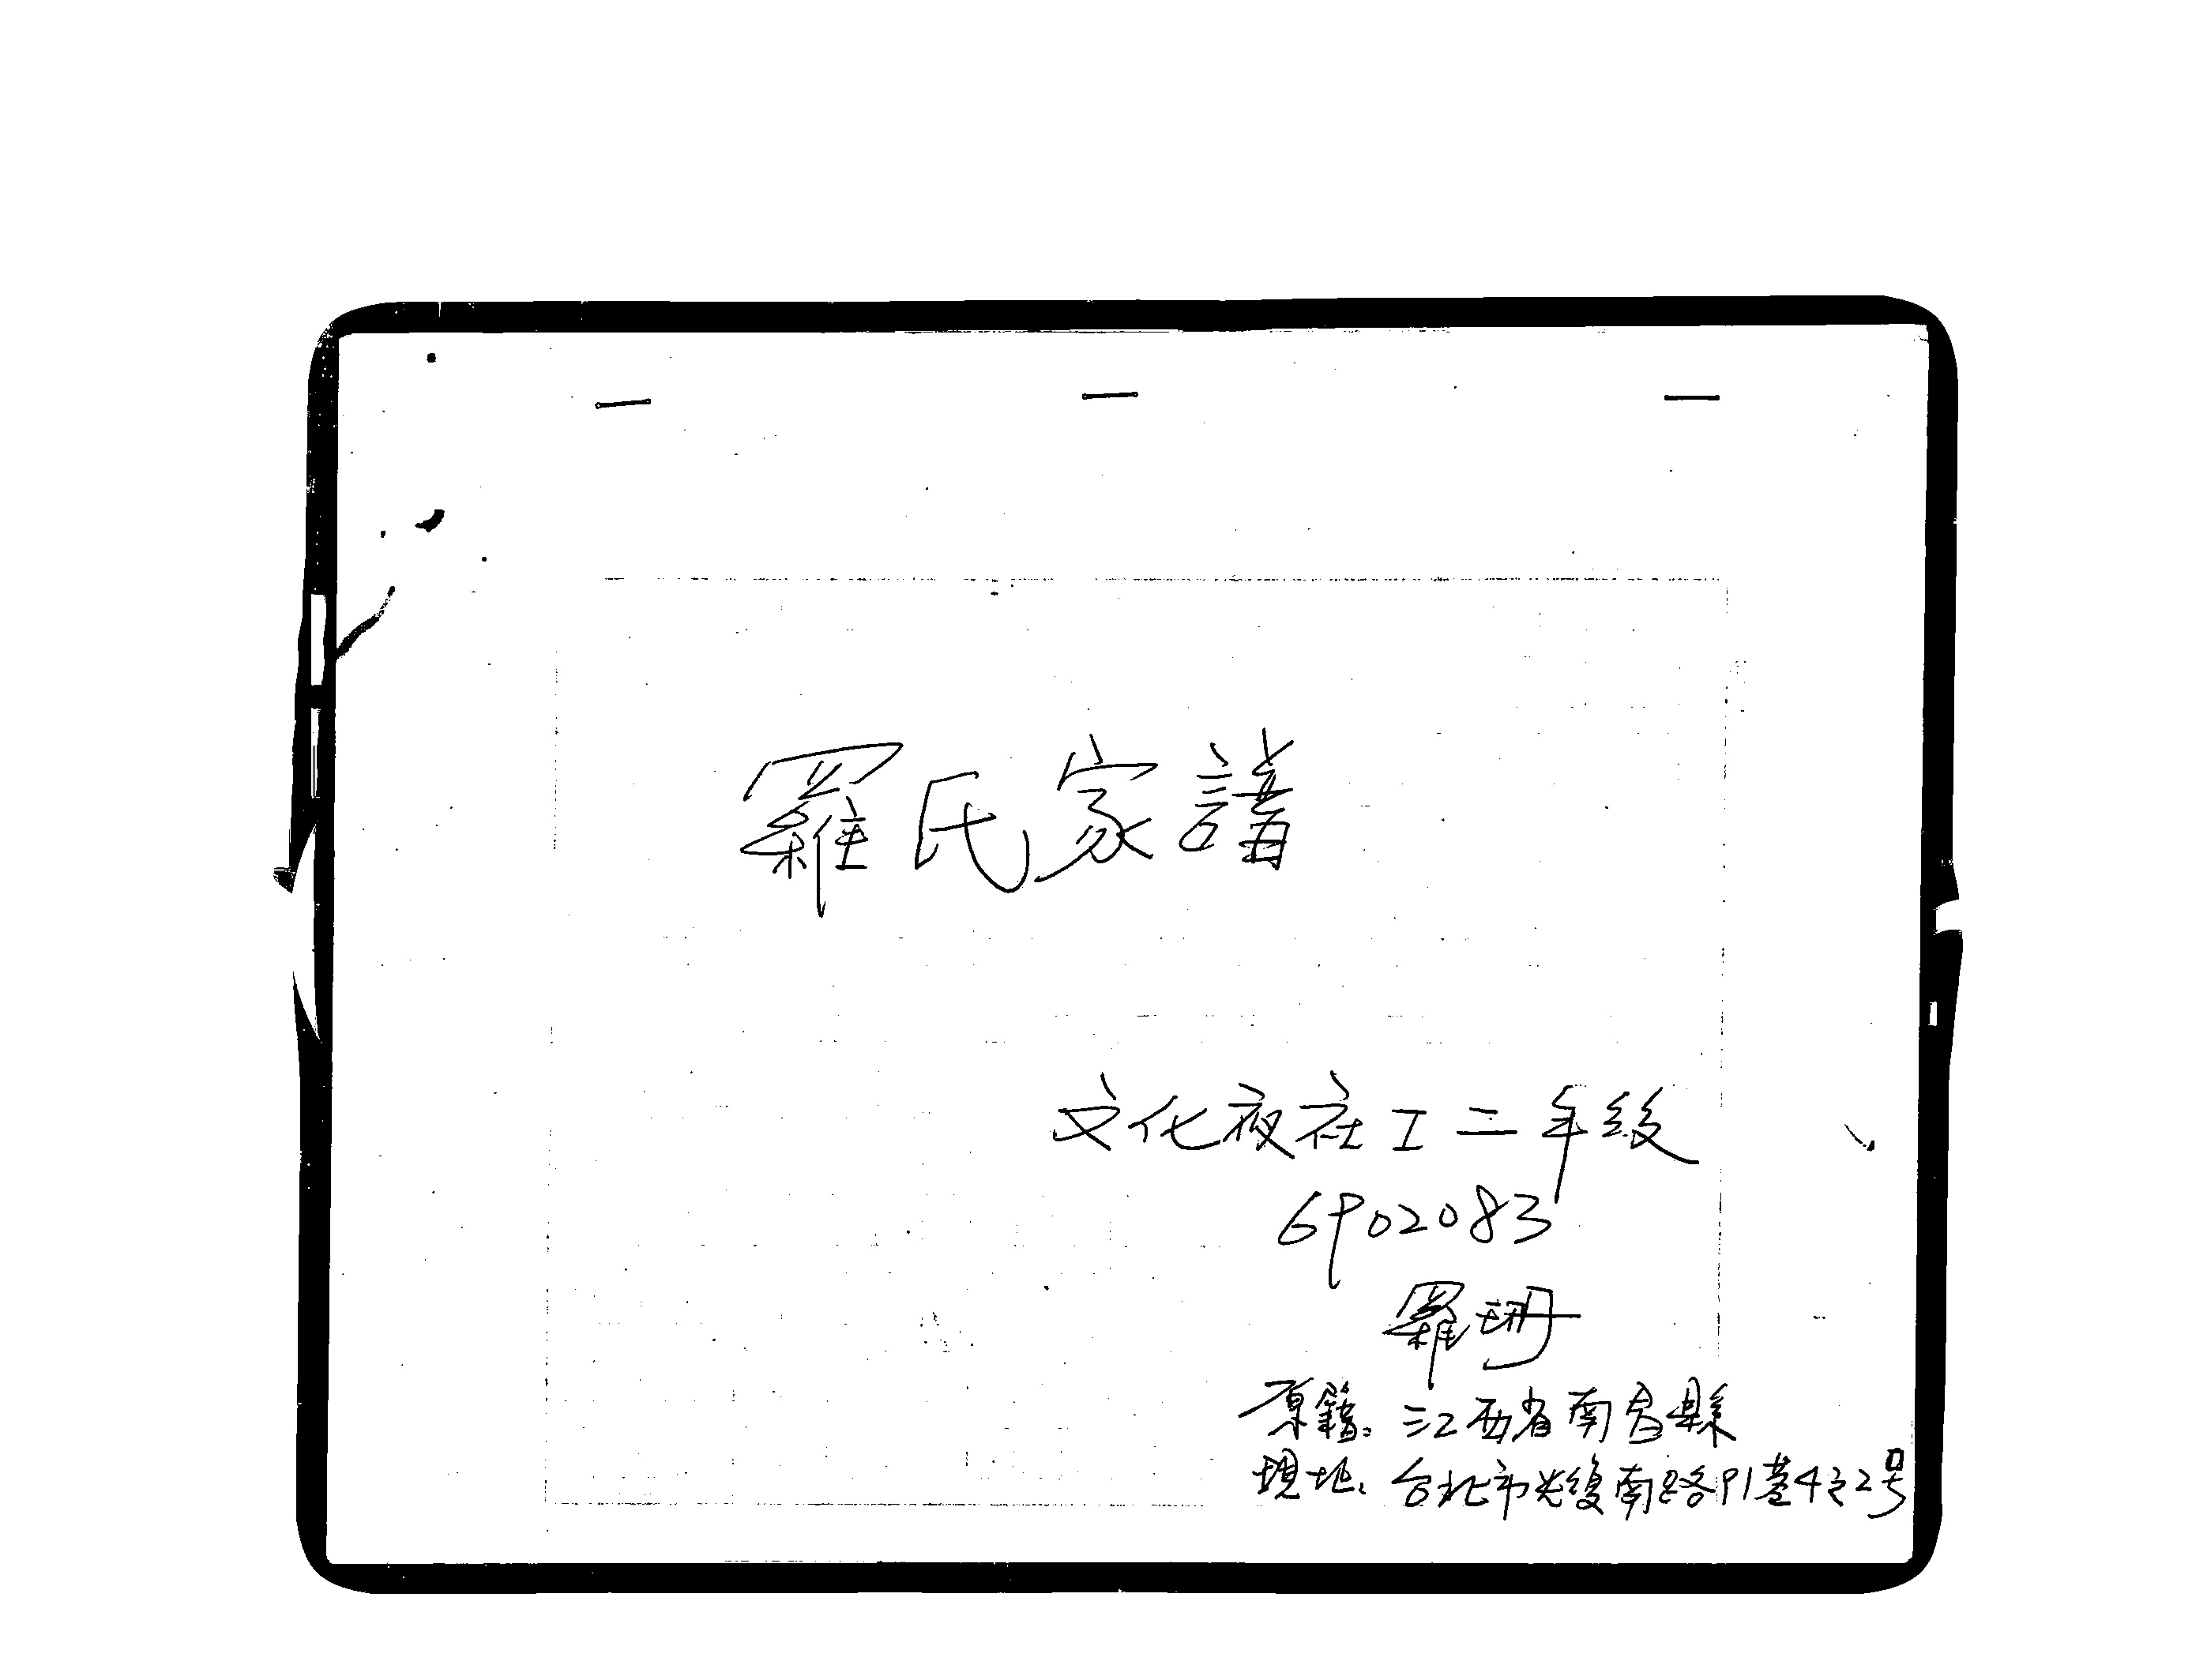 羅氏家譜
文化夜社工二年級
6902083
羅珊
原籍：江西省南昌縣
現址：台北市光復南路91巷4之2号